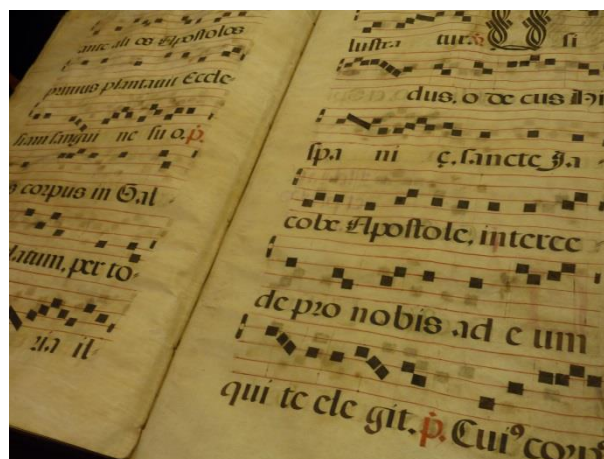 ante ali os Apostolos
primus plantavit Eccle
siam sangui ne su o. p.
corpus in Gal
latum, per to
ra il
lustra tur. si
dus. o de cus Hi
spa ni ę. sancte Ja
cobe Apostole, interce
de pro nobis ad e um
qui te ele git. p. Cui⁹ corp⁹